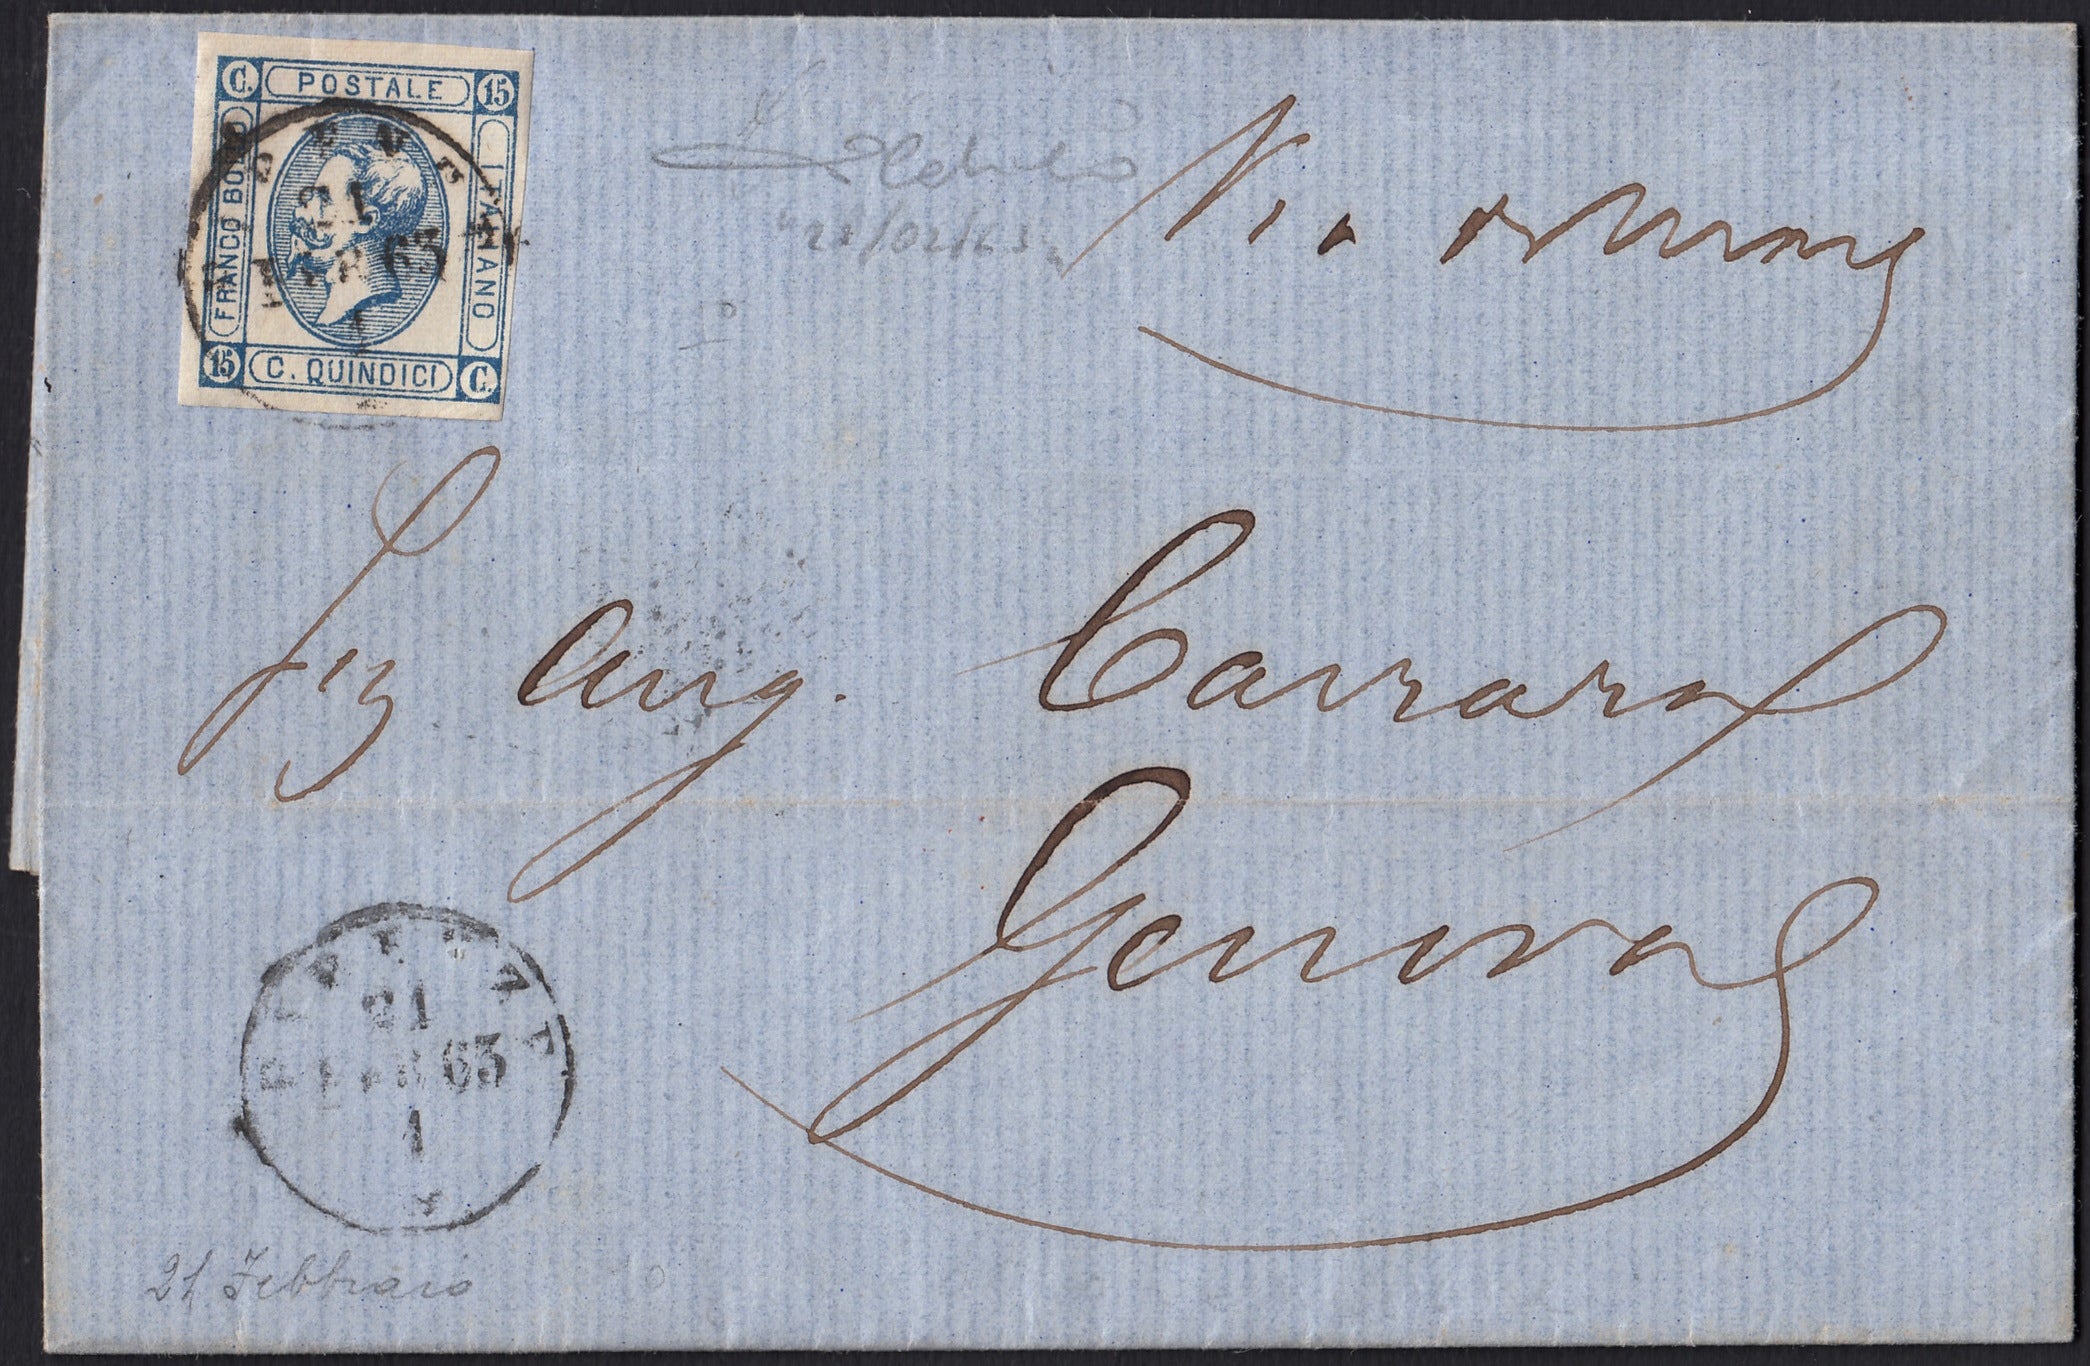 C. POSTALE 15
FRANCO BOLLO
ITALIANO
15 C. QUINDICI C.
21
63
Via di Mare
"21/02/63"
Sig Aug. Carrara
Genova
21
FEBR 63
1
21 Febbraio